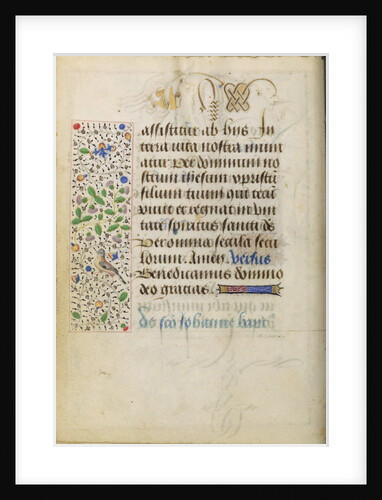 assistitur ab hus In
terra uita nostra muni
atur Per dominum no
strum ihesum xpristū
filium tuum qui tecū
viuit et regnat in vni
tate spiritus sancti de
Per omnia secula secu
lorum. Amen. versus
Benedicamus domino
deo gracias
de sco Iohanne bapt